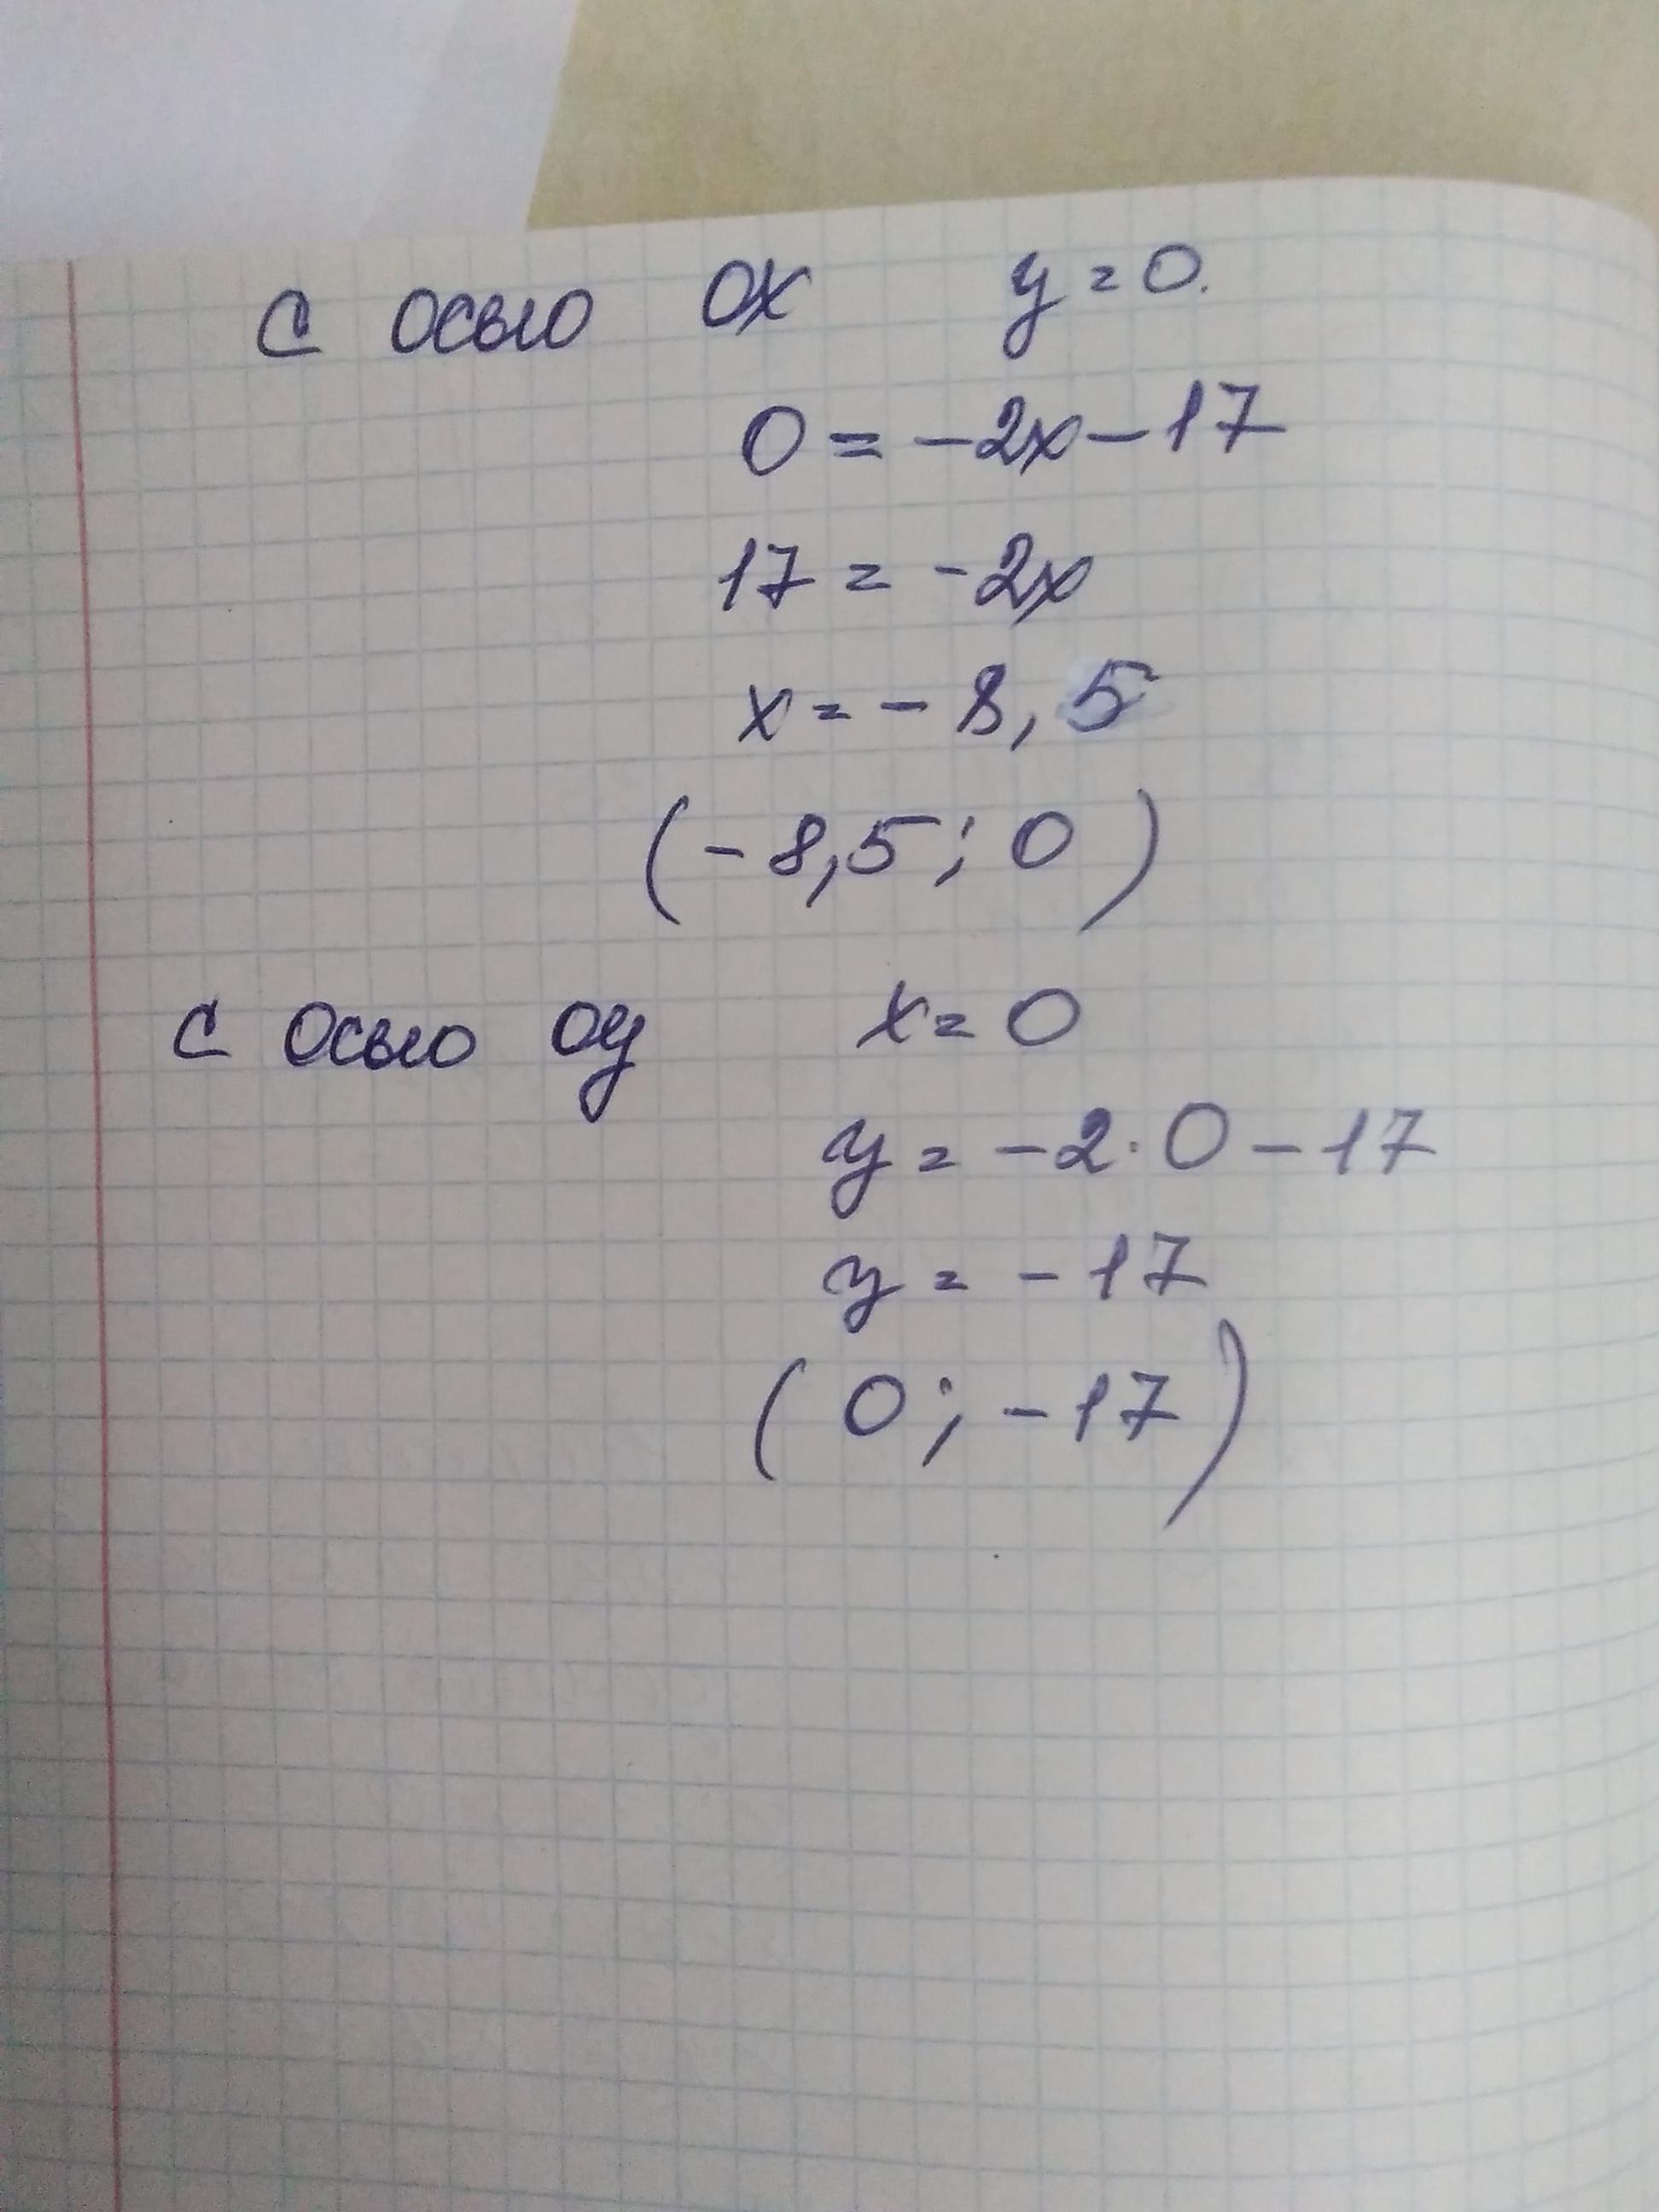 с осью OX y=0.
0=-2x-17
17=-2x
x=-8,5
(-8,5; 0)
с осью OY x=0
y=-2·0-17
y=-17
(0; -17)